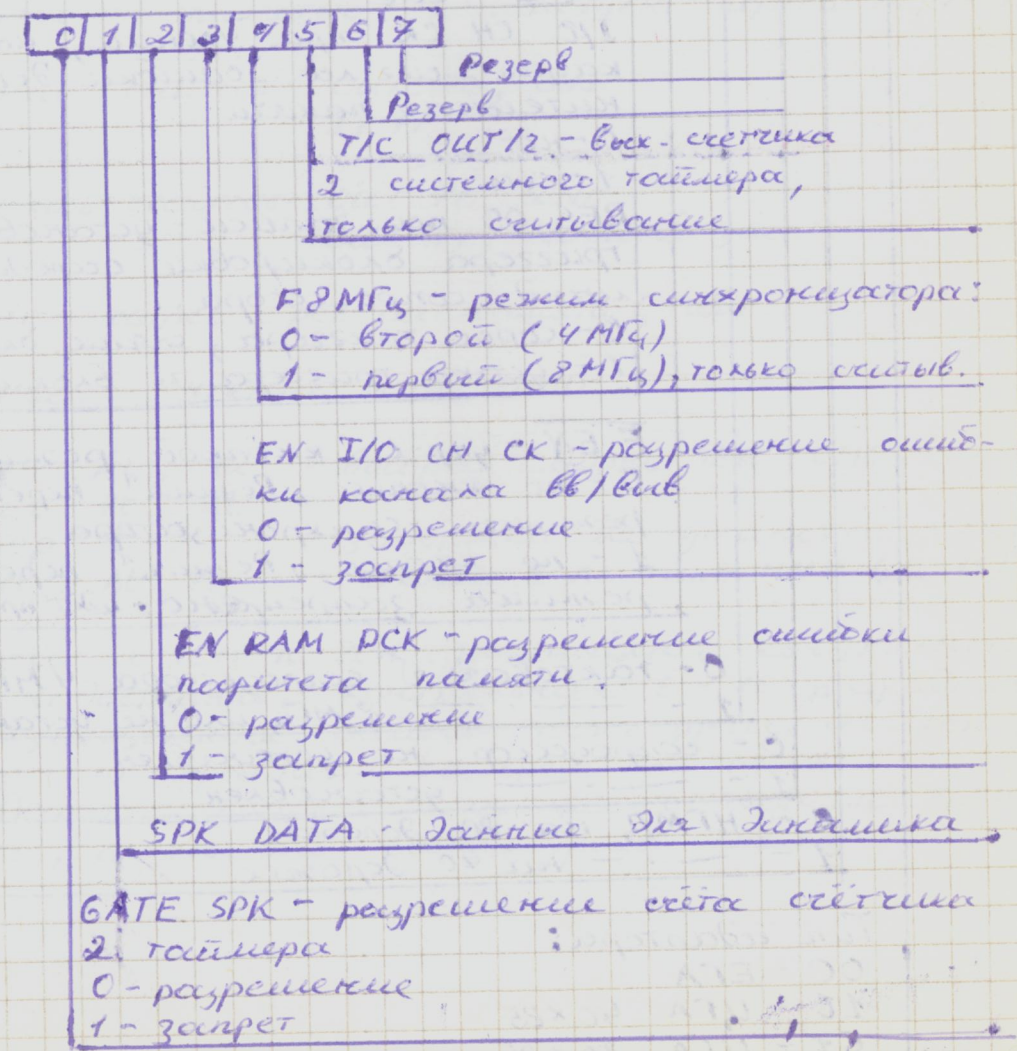 0 1 2 3 4 5 6 7
Резерв
Резерв
T/C OUT/2 - вых. счетчика
2 системного таймера,
только считывание
F8МГц - режим синхронизатора:
0 - второй (4 МГц)
1 - первый (8 МГц), только считыв.
EN I/O CH CK - разрешение ошиб-
ки канала вв/выв
0 - разрешение
1 - запрет
EN RAM PCK - разрешение ошибки
паритета памяти.
0 - разрешение
1 - запрет
SPK DATA - данные для динамика
GATE SPK - разрешение счёта счётчика
2 таймера
0 - разрешение
1 - запрет